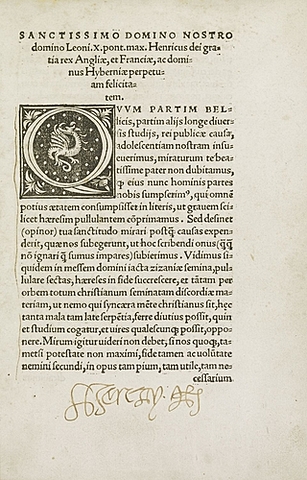 SANCTISSIMO DOMINO NOSTRO
domino Leoni.X.pont.max. Henricus dei gra-
tia rex Angliæ, et Franciæ, ac domi-
nus Hyberniæ perpetu-
am felicita-
tem.
QVVM PARTIM BEL-
licis, partim alijs longe diuer-
sis studijs, rei publicæ causa,
adolescentiam nostram insu-
euerimus, miraturum te bea-
tissime pater non dubitamus,
ꝙ eius nunc hominis partes
nobis sumpserimꝰ, qui omnē
potius ætatem consumpsisset in literis, ut grauem sci-
licet hæresim pullulantem cōprimamus. Sed desinet
(opinor) tua sanctitudo mirari postꝗ̄ causas expen-
derit, quæ nos subegerunt, ut hoc scribendi onus (ꝗ̄ꝗ̄
nō ignari ꝗ̄ sumus impares) subierimus. Vidimus si-
quidem in messem domini iacta zizaniæ semina, pul-
lulare sectas, hæreses in fide succrescere, et tātam per
orbem totum christianum seminatam discordiæ ma-
teriam, ut nemo qui syncera mēte christianus sit, hęc
tanta mala tam late serpētia, ferre diutius possit, quin
et studium cogatur, et uires qualescunqꝫ possit, oppo-
nere. Mirum igitur uideri non debet, si nos quoqꝫ, ta-
metsi potestate non maximi, fide tamen ac uolūtate
nemini secundi, in opus tam pium, tam utile, tam ne-
cessarium